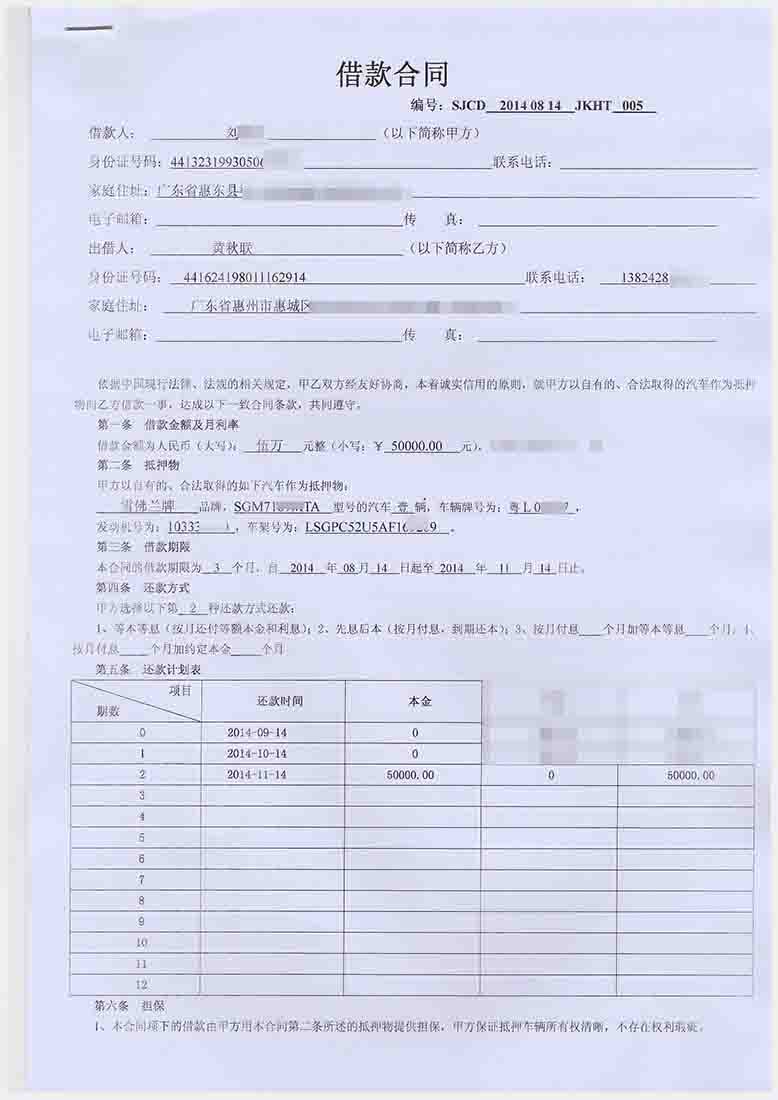 借款合同
编号：SJCD 2014 08 14 JKHT 005
借款人： 刘 （以下简称甲方）
身份证号码：44132319930506 联系电话：
家庭住址：广东省惠东县
电子邮箱： 传 真：
出借人： 黄秋联 （以下简称乙方）
身份证号码： 441624198011162914 联系电话： 1382428
家庭住址： 广东省惠州市惠城区
电子邮箱： 传 真：
依据中国现行法律、法规的相关规定，甲乙双方经友好协商，本着诚实信用的原则，就甲方以自有的、合法取得的汽车作为抵押
物向乙方借款一事，达成以下一致合同条款，共同遵守。
第一条 借款金额及月利率
借款金额为人民币（大写）： 伍万 元整（小写：￥ 50000.00 元）。
第二条 抵押物
甲方以自有的、合法取得的如下汽车作为抵押物：
雪佛兰牌 品牌，SGM71 TA 型号的汽车 壹 辆，车辆牌号为：粤L 0 7 ，
发动机号为：10333 ，车架号为：LSGPC52U5AF16 9 。
第三条 借款期限
本合同的借款期限为 3 个月，自 2014 年 08 月 14 日起至 2014 年 11 月 14 日止。
第四条 还款方式
甲方选择以下第 2 种还款方式还款：
1、等本等息（按月还付等额本金和利息）；2、先息后本（按月付息，到期还本）；3、按月付息 个月加等本等息 个月；4、
按月付息 个月加约定本金 个月
第五条 还款计划表
项目 期数 还款时间 本金
0 2014-09-14 0
1 2014-10-14 0
2 2014-11-14 50000.00 0 50000.00
3
4
5
6
7
8
9
10
11
12
第六条 担保
1、本合同项下的借款由甲方用本合同第二条所述的抵押物提供担保，甲方保证抵押车辆所有权清晰，不存在权利瑕疵。